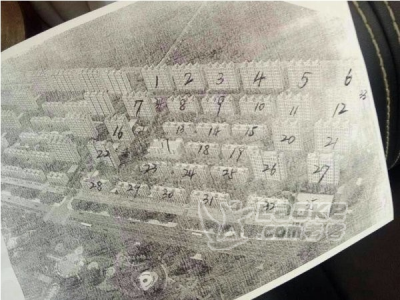 1 2 3 4 5 6
7 8 9 10 11 12
16 13 14 15 20 21
22 18 19
23 24 25 26 27
28 29 30 31 32
Ladke
.com